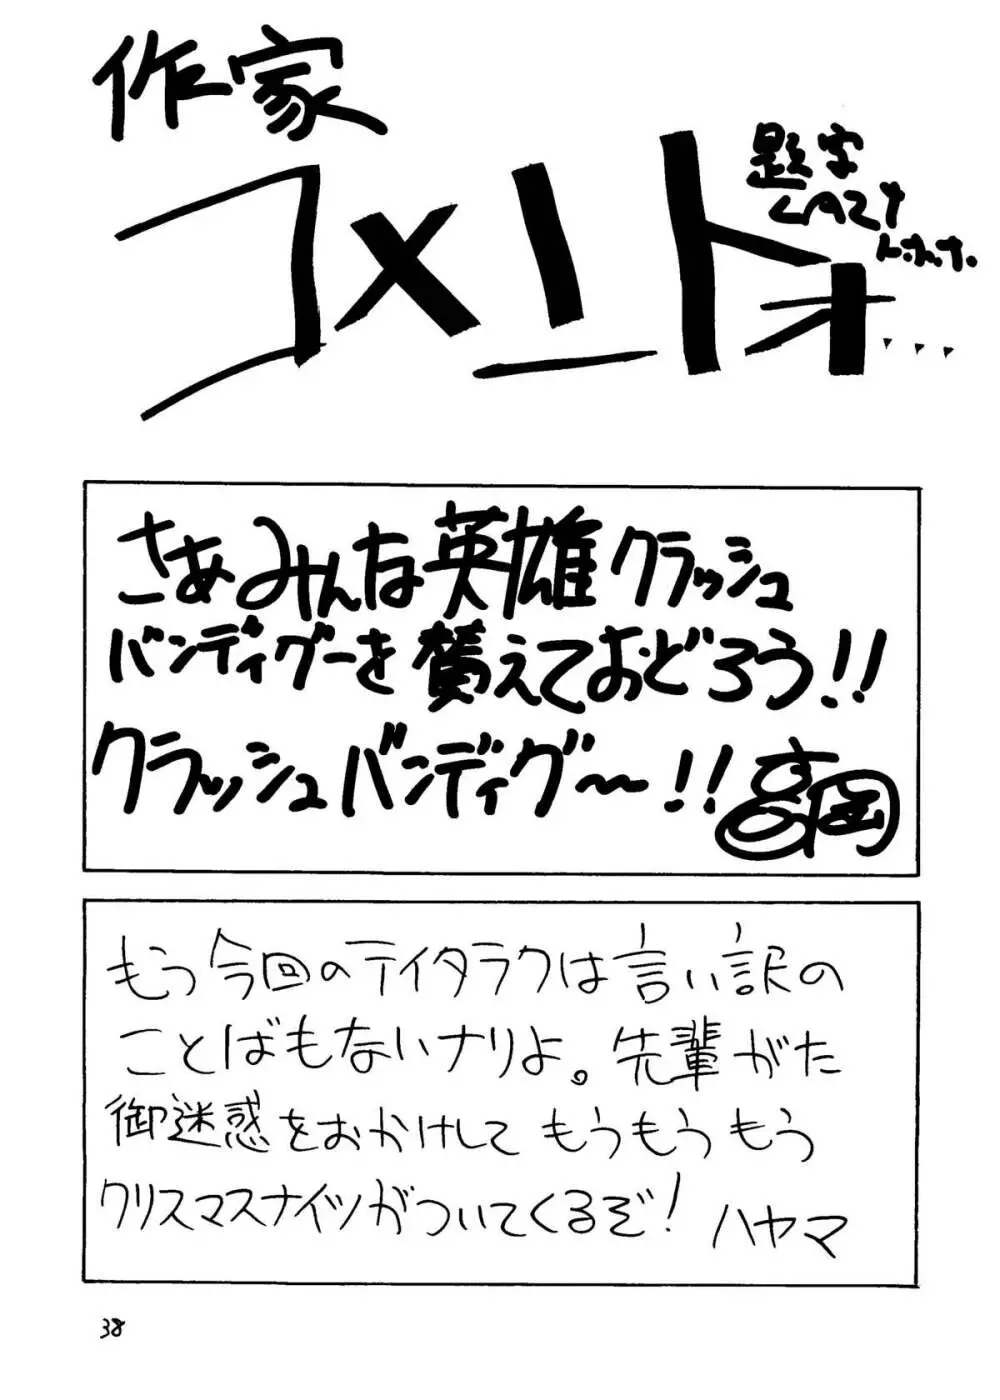 作家
コメント
題字
LAZY
トホホ.
さぁみんな英雄クラッシュ
バンディグーを賛えておどろう!!
クラッシュバンディグ〜!!
高岡
もう今回のテイタラクは言い訳の
ことばもないナリよ。先輩がた
御迷惑をおかけして もうもう もう
クリスマスナイツがついてくるぞ! ハヤマ
38